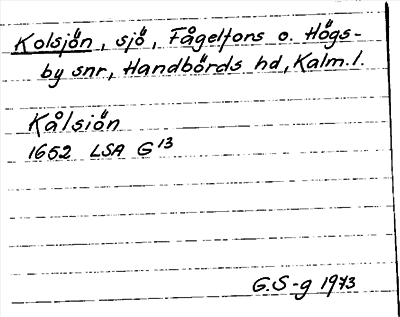 Kolsjön, sjö, Fågelfors o. Högs-
by snr, Handbörds hd, Kalm. l.
Kålsiön
1652 LSA G 13
G.S-g 1973